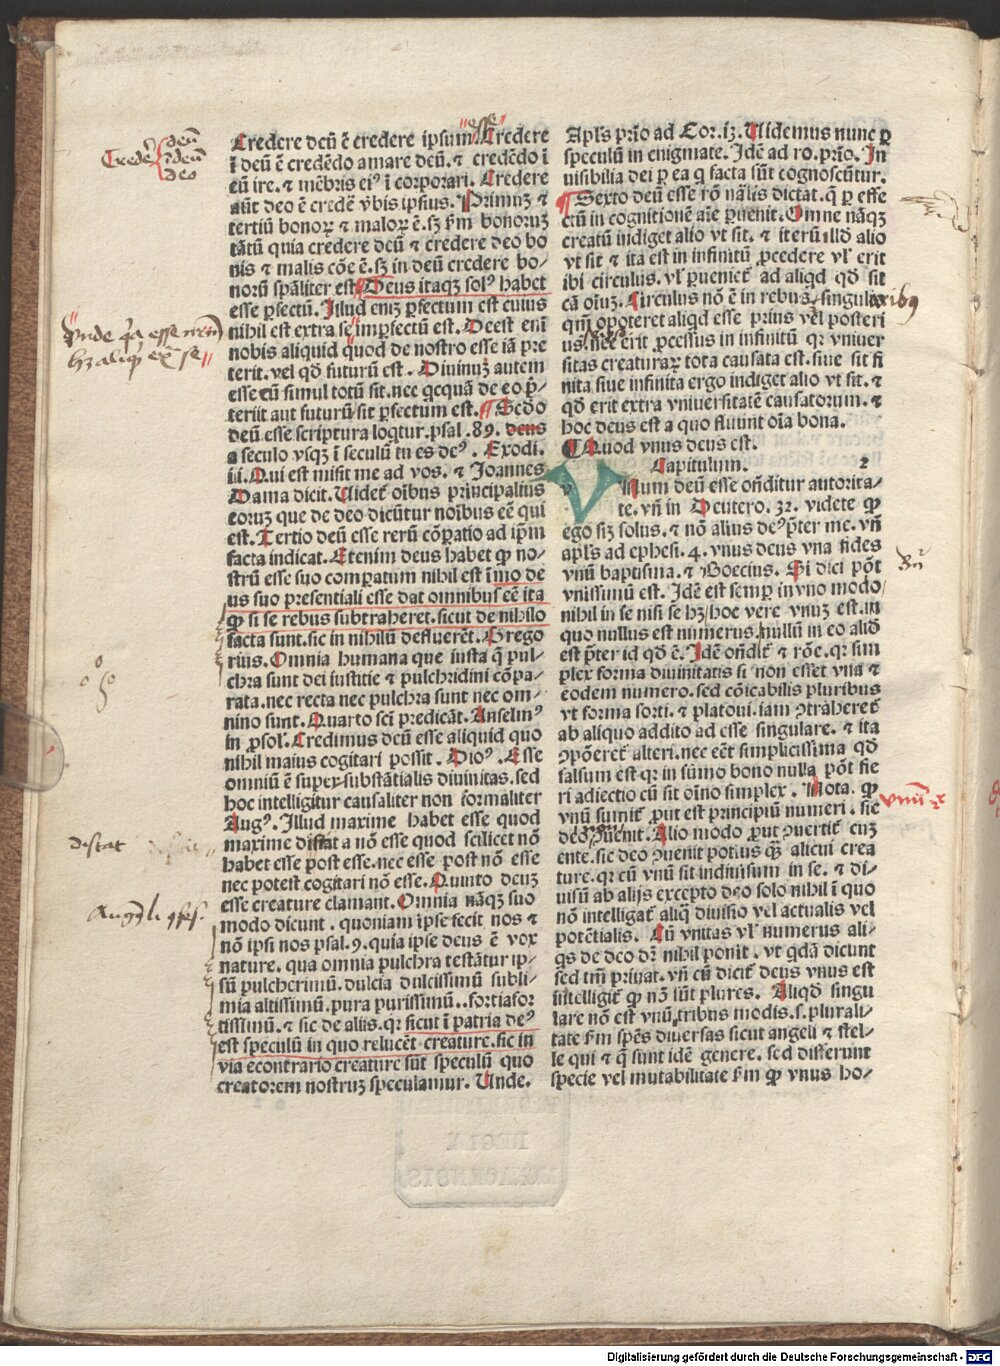 Credere deū ē credere ipsum esse Credere
ī deū ē credēdo amare deū. ⁊ credēdo ī
eū ire. ⁊ mēbris eiꝰ ī corporari. Credere
aūt deo ē credē v̄bis ipsius. Primuꝫ ⁊
tertiū bonoꝝ ⁊ maloꝝ ē. sꝫ ẜm bonoruꝫ
tātū quia credere deū ⁊ credere deo bo
nis ⁊ malis cōe ē. sꝫ in deū credere bo-
norū spāliter est Deus itaqꝫ solꝰ habet
esse ꝑfectū. Illud eniꝫ ꝑfectum est cuius
nihil est extra se imꝑfectū est. Deest enī
nobis aliquid quod de nostro esse iā pre
terit. vel qd̄ futurū est. Diuinuꝫ autem
esse cū simul totū sit. nec qcquā de eo p̄-
teriit aut futurū sit ꝑfectum est. Scd̄o
deū esse scriptura loqtur. psal. 89. deus
a seculo vsqꝫ ī seculū tu es deꝰ. Exodi.
iii. Qui est misit me ad vos. ⁊ Joannes
Dama dicit. Videt̄ oībus principalius
eoruꝫ que de deo dicūtur noībus eē qui
est. Tertio deū esse rerū cōꝑatio ad ip̄m
facta indicat. Etenim deus habet ꝙ no-
strū esse suo comꝑatum nihil est īmo de
us suo presentiali esse dat omnibus eē ita
ꝙ si se rebus subtraheret. sicut de nihilo
facta sunt. sic in nihilū defluerēt. Grego
rius. Omnia humana que iusta q̄ pul-
chra sunt dei iustitie ⁊ pulchridini cōpa-
rata. nec recta nec pulchra sunt nec om-
nino sunt. Quarto sci predicāt. Anselmꝰ
in ꝓsol. Credimus deū esse aliquid quo
nihil maius cogitari possit. Dioꝰ. Esse
omniū ē super substātialis diuinitas. sed
hoc intelligitur causaliter non formaliter
Augꝰ. Illud maxime habet esse quod
maxime distat a nō esse quod scilicet nō
habet esse post esse. nec esse post nō esse
nec potest cogitari nō esse. Quinto deuꝫ
esse creature clamant. Omnia nāqꝫ suo
modo dicunt. quoniam ipse fecit nos ⁊
nō ipsi nos psal. 9. quia ipse deus ē vox
nature. qua omnia pulchra testātur ip-
sū pulcherimū. dulcia dulcissimū subli-
mia altissimū. pura purissimū. fortia for
tissimū. ⁊ sic de aliis. qꝛ sicut ī patria deꝰ
est speculū in quo relucēt creature. sic in
via econtrario creature sūt speculū quo
creatorem nostruꝫ speculamur. Unde.
Apl̄s pr̄io ad Cor. iꝫ. Videmus nunc ꝑ
speculū in enigmate. Idē ad ro. pr̄io. In
uisibilia dei ꝑ ea q facta sūt cognoscūtur.
Sexto deū esse rō nālis dictat. q̄ ꝑ effe
ctū in cognitionē āie ꝑuenit. Omne nāqꝫ
creatū indiget alio vt sit. ⁊ iterū illd̄ alio
vt sit ⁊ ita est in infinitū ꝓcedere vl̓ erit
ibi circulus. vl̓ ꝑueniet̄ ad aliqd qd̄ sit
cā oīuꝫ. Circulus nō ē in rebus singularibꝰ
qm̄ oporteret aliqd esse prius vel posteri
us nec erit ꝓcessus in infinitū qꝛ vniuer
sitas creaturaꝝ tota causata est. siue sit fi
nita siue infinita ergo indiget alio vt sit. ⁊
qd̄ erit extra vniuersitatē causatorum. ⁊
hoc deus est a quo fluunt oīa bona.
Quod vnus deus est.
Capitulum. 2
Vnum deū esse on̄ditur autorita-
te. vn̄ in Deutero. 32. videte ꝙ
ego siꝫ solus. ⁊ nō alius deꝰ p̄ter me. vn̄
apl̄s ad ephesi. 4. vnus deus vna fides
vnū baptisma. ⁊ Boecius. Si dici pōt
vnissimū est. Idē est semꝑ in vno modo
nihil in se nisi se hꝫ hoc vere vnuꝫ est. in
quo nullus est numerus nullū in eo aliḋ
est p̄ter id qd̄ ē. Idē on̄dit̄ ⁊ rōe. qꝛ sim
plex forma diuinitatis si non esset vna ⁊
eodem numero. sed cōicabilis pluribus
vt forma sorti. ⁊ platoni. iam ꝯtraheret̄
ab aliquo addito ad esse singulare. ⁊ ita
ꝯpōeret̄ alteri. nec eēt simplicissima qd̄
falsum est qꝛ in sūmo bono nulla pōt fie
ri adiectio cū sit oīno simplex. Nota. ꝙ
vnū sumit̄ ꝓut est principiū numeri. sic
deo ꝯuenit. Alio modo ꝓut ꝯuertit̄ cuꝫ
ente. sic deo ꝯuenit potius qꝫ alicui crea
ture. qꝛ cū vnū sit indiuisum in se. ⁊ di-
uisū ab aliis excepto deo solo nihil ī quo
nō intelligat̄ aliq̄ diuisio vel actualis vel
potētialis. Cū vnitas vl̓ numerus ali-
qs de deo dꝛ nihil ponit. vt qdā dicunt
sed tm̄ priuat. vn̄ cū dicit̄ deus vnus est
intelligit̄ ꝙ nō sūt plures. Aliqd̄ singu
lare nō est vnū tribus modis. s. plurali-
tate ẜm spēs diuersas sicut angeli ⁊ stel-
le qui ⁊ q̄ sunt idē genere. sed differunt
specie vel mutabilitate ẜm ꝙ vnus ho-
Credē deū
ī deū
deo
distat
vnū
Digitalisierung gefördert durch die Deutsche Forschungsgemeinschaft - DFG